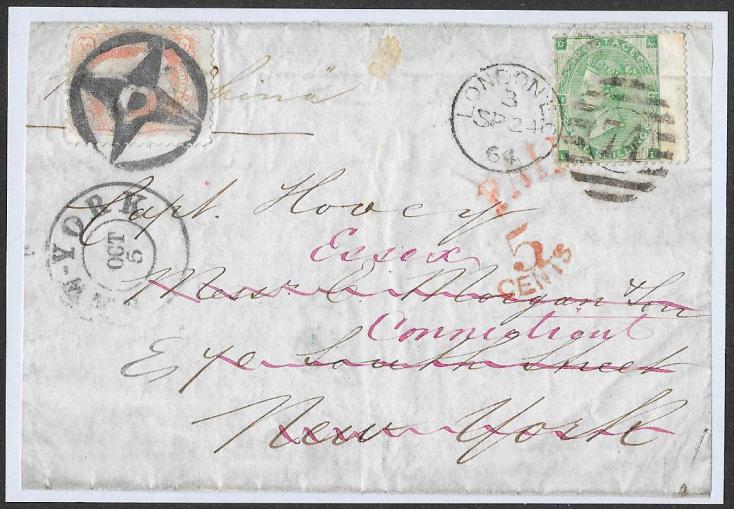 "China"
LONDON E.C
3
SP 24
64
POSTAGE
PAID
Capt. Hovey
YORK
OCT
5
Essex
5
CENTS
Messrs E Morgan & Son
Connecticut
E 70 South Street
New York